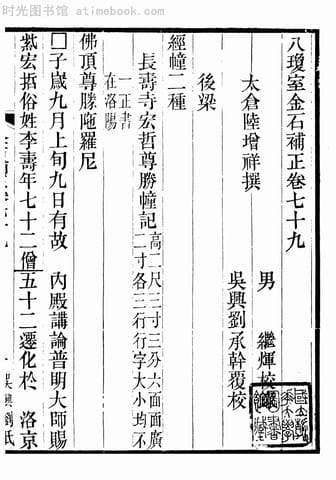 时光书库 atimebook.com
八瓊室金石補正卷七十九
太倉陸增祥撰
男 繼煇校錄
吳興劉承幹覆校
後梁
經幢二種
長壽寺宏哲尊勝幢記高二尺三寸三分六面面廣二寸各三行行字大小均不一正書在洛陽
佛頂尊勝陁羅尼
□子嵗九月上旬九日有故 內殿講論普明大師賜
紫宏哲俗姓李壽年七十二僧五十二遷化於 洛京
吳興劉氏